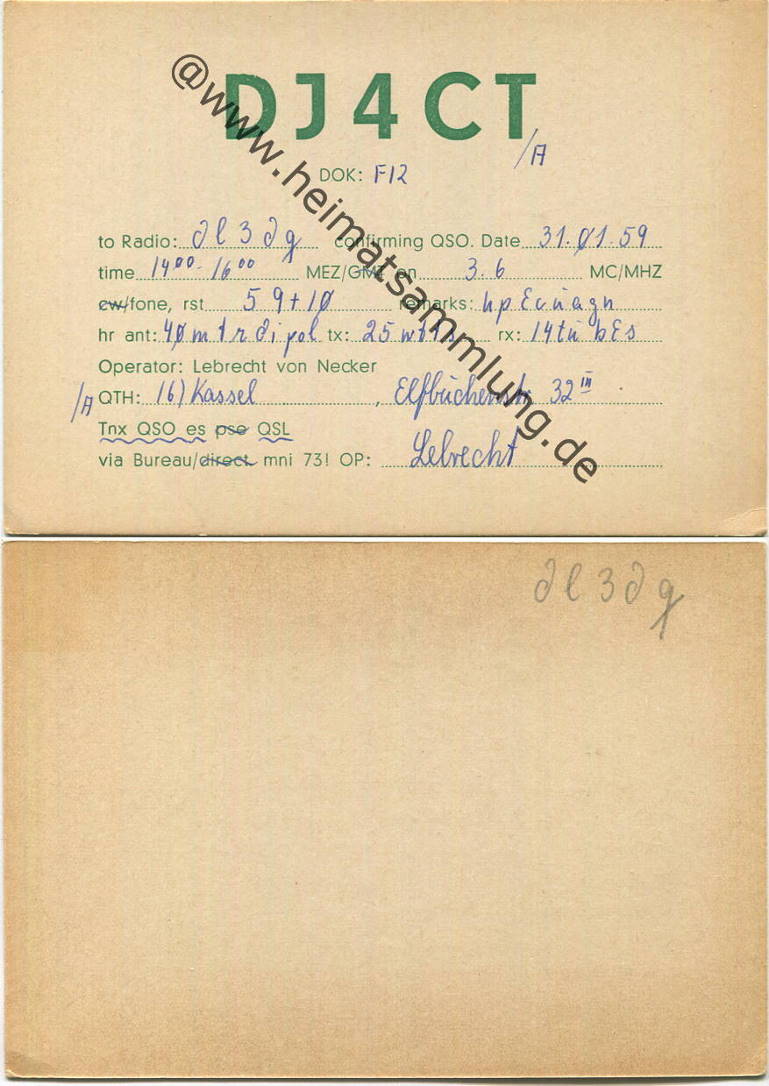 DJ4CT
/A
DOK: F12
to Radio: dl3dg confirming QSO. Date 31.01.59
time 14⁰⁰-16⁰⁰ MEZ/GMT on 3.6 MC/MHZ
cw/fone, rst 59+10 remarks: hpEcuagn
hr ant: 40mtrdipol tx: 25wtts rx: 14tu bEs
Operator: Lebrecht von Necker
/A QTH: 16) Kassel, Elfbuchenstr 32 III
Tnx QSO es pse QSL
via Bureau/direct. mni 73! OP: Lebrecht
@www.heimatsammlung.de
dl3dg